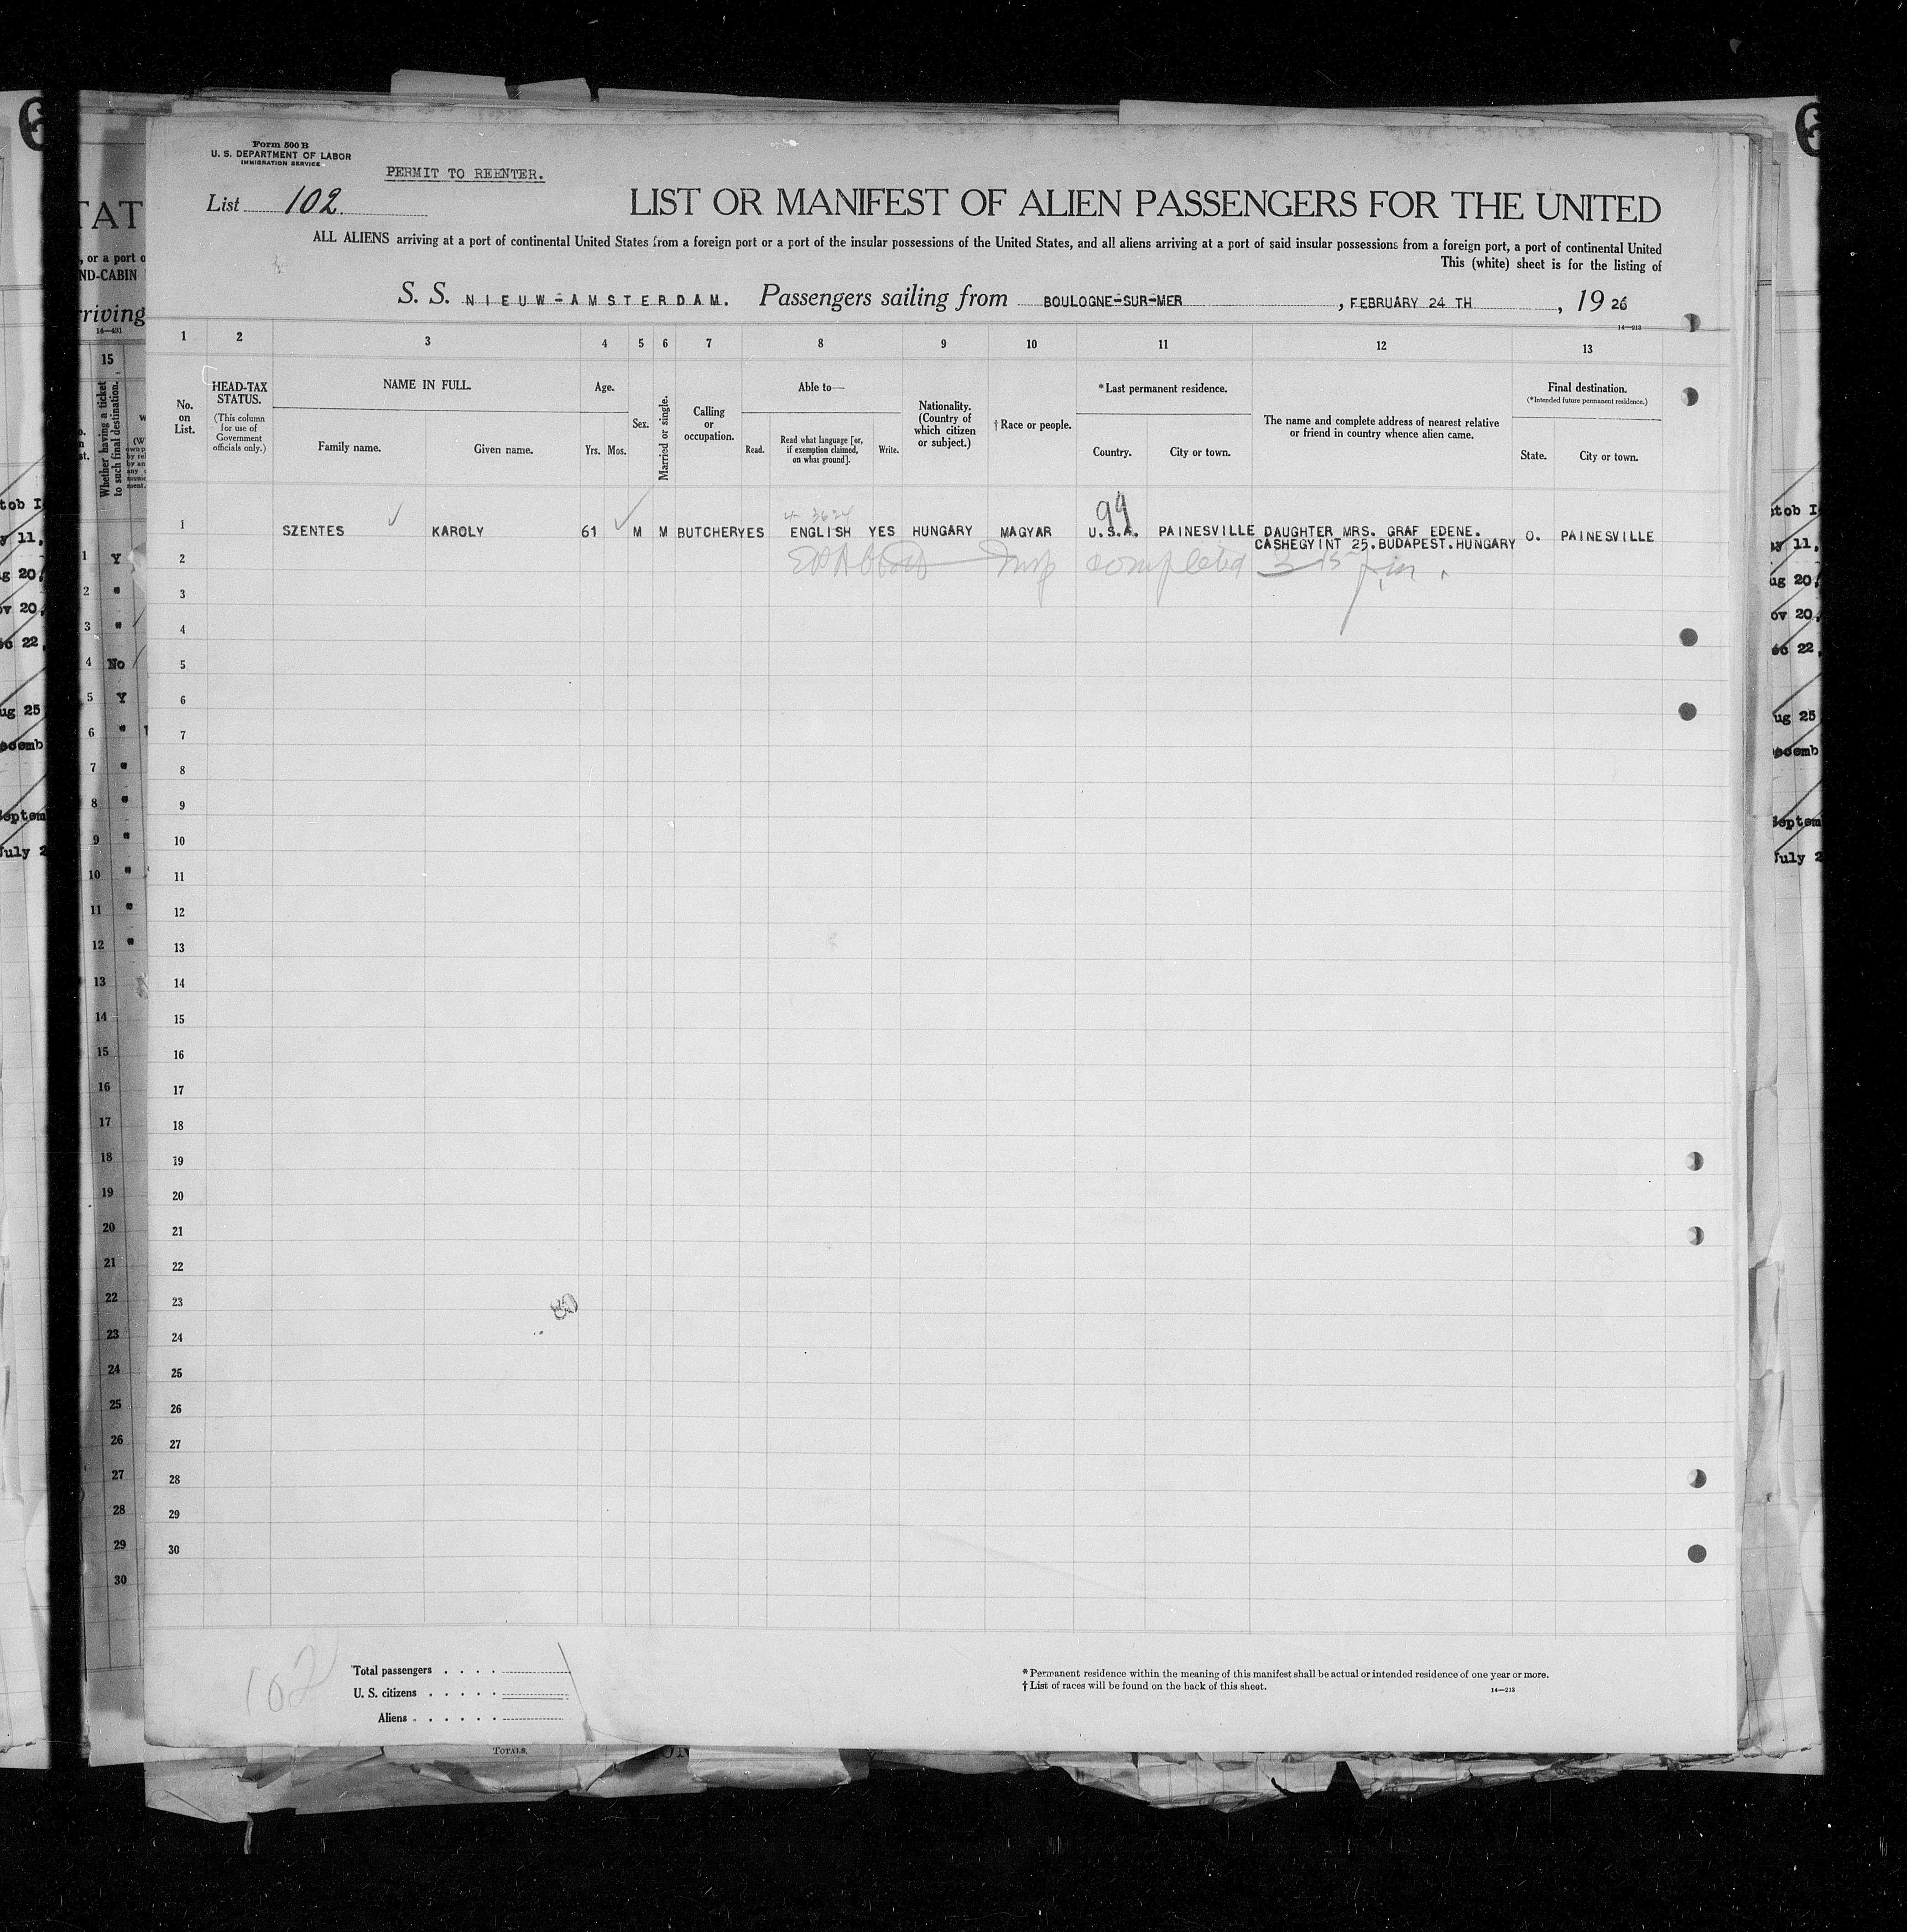 Form 500 B
U. S. DEPARTMENT OF LABOR
IMMIGRATION SERVICE
PERMIT TO REENTER.
List 102.
LIST OR MANIFEST OF ALIEN PASSENGERS FOR THE UNITED
ALL ALIENS arriving at a port of continental United States from a foreign port or a port of the insular possessions of the United States, and all aliens arriving at a port of said insular possessions from a foreign port, a port of continental United
This (white) sheet is for the listing of
S. S. NIEUW-AMSTERDAM. Passengers sailing from BOULOGNE-SUR-MER, FEBRUARY 24 TH, 19 26
14—213
1 2 3 4 5 6 7 8 9 10 11 12 13
No. on List.
HEAD-TAX STATUS.
(This column for use of Government officials only.)
NAME IN FULL.
Family name. Given name.
Age.
Yrs. Mos.
Sex.
Married or single.
Calling or occupation.
Able to—
Read. Read what language [or, if exemption claimed, on what ground]. Write.
Nationality. (Country of which citizen or subject.)
† Race or people.
*Last permanent residence.
Country. City or town.
The name and complete address of nearest relative or friend in country whence alien came.
Final destination.
(*Intended future permanent residence.)
State. City or town.
99
1 SZENTES KAROLY 61 M M BUTCHER YES ENGLISH YES HUNGARY MAGYAR U.S.A. PAINESVILLE DAUGHTER MRS. GRAF EDENE. O. PAINESVILLE
CASHEGYINT 25.BUDAPEST.HUNGARY
2 Insp completed
3
4
5
6
7
8
9
10
11
12
13
14
15
16
17
18
19
20
21
22
23
24
25
26
27
28
29
30
102
Total passengers . . . .
U. S. citizens . . . . .
Aliens . . . . . .
* Permanent residence within the meaning of this manifest shall be actual or intended residence of one year or more.
† List of races will be found on the back of this sheet.
14—213
TOTALS.
TAT
, or a port o
ND-CABIN
rriving
14—451
15
Whether having a ticket to such final destination.
1 Y
2 "
3 "
4 No
5 Y
6 "
7 "
8 "
9 "
10 "
11 "
12 "
13
14
15
16
17
18
19
20
21
22
23
24
25
26
27
28
29
30
tob I
y 11,
ug 20,
ov 20,
ec 22,
ug 25
ecemb
Septem
July 2